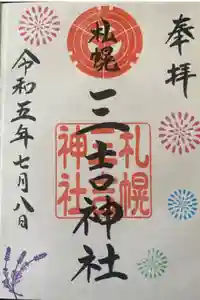 奉拝
札幌
三吉神社
札幌
神社
令和五年七月八日